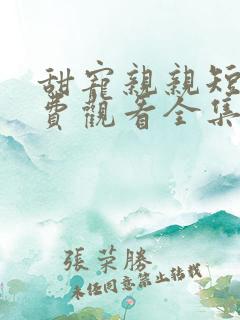 甜寵親親短
費觀看全集
張榮勝
未经同意禁止转载